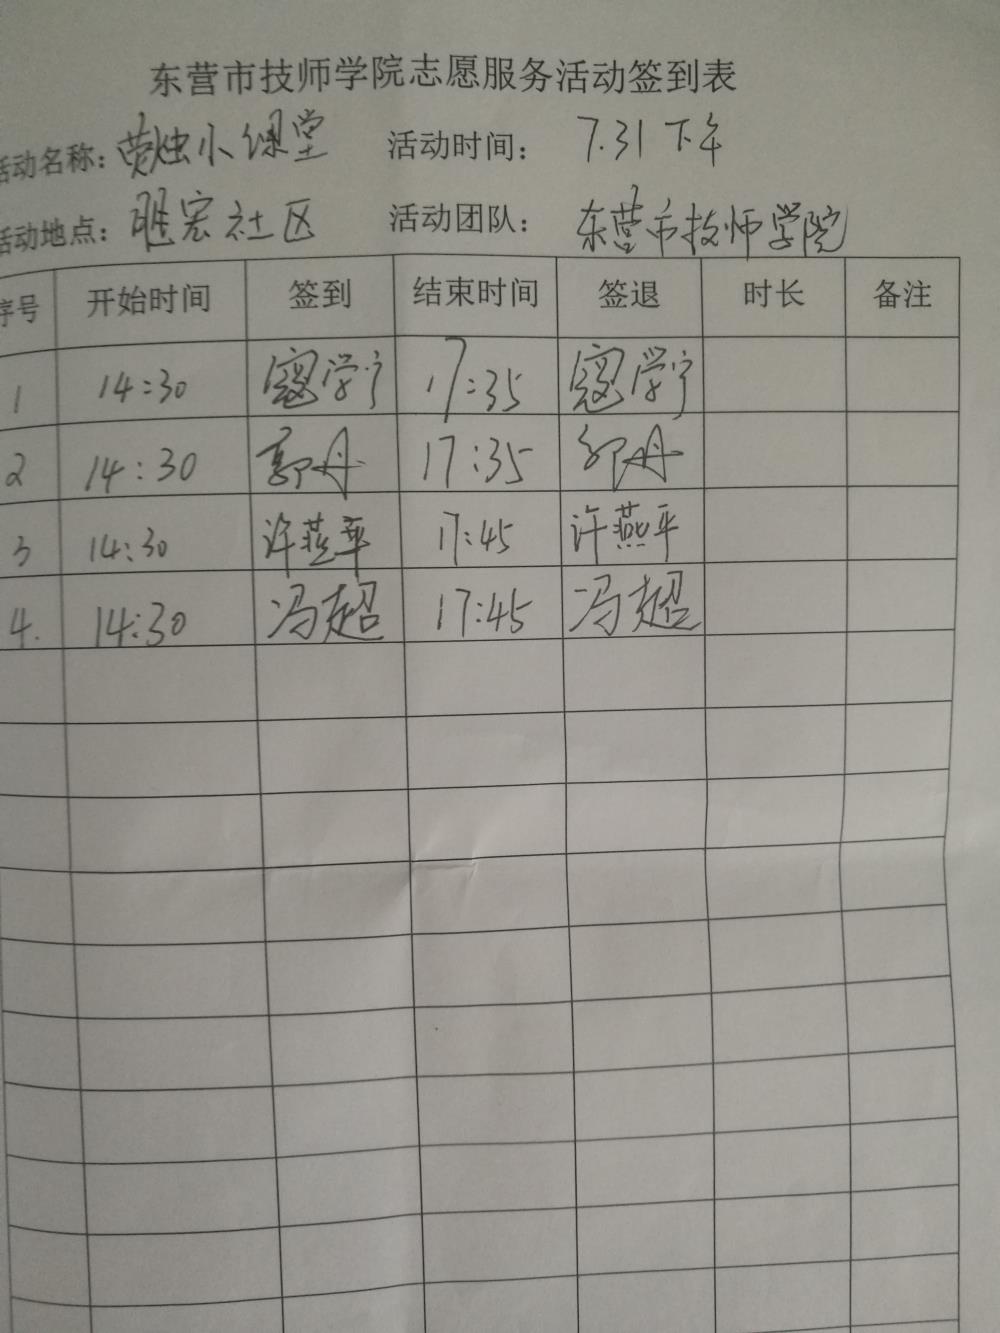 东营市技师学院志愿服务活动签到表
活动名称：荧烛小课堂 活动时间：7.31下午
活动地点：胜宏社区 活动团队：东营市技师学院
序号 开始时间 签到 结束时间 签退 时长 备注
1 14:30 寇学宁 17:35 寇学宁
2 14:30 郭丹 17:35 郭丹
3 14:30 许燕平 17:45 许燕平
4. 14:30 冯超 17:45 冯超